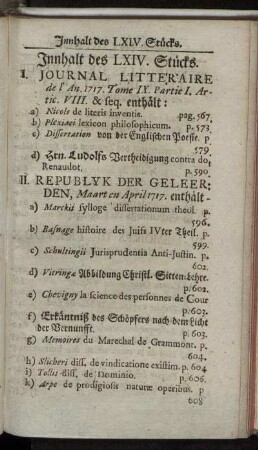 Innhalt des LXIV. Stücks.
Innhalt des LXIV. Stücks.
I. JOURNAL LITTERAIRE
de l' An. 1717. Tome IX. Partie I. Ar-
tic. VIII. & seq. enthält:
a) Nicols de literis inventis. pag. 567.
b) Plexiaci lexicon philosophicum. p. 573.
c) Dissertation von der Englischen Poesie. p.
579.
d) Hrn. Ludolfs Vertheidigung contra do.
Renaudot. p. 590.
II. REPUBLYK DER GELEER-
DEN, Maart en April 1717. enthält
a) Marckii sylloge dissertationum theol. p.
596.
b) Basnage histoire des Juifs IVter Theil. p.
599.
c) Schultingii Jurisprudentia Anti-Justin. p.
602.
d) Vitringæ Abbildung Christl. Sitten-Lehre.
p. 602.
e) Chevigny la science des personnes de Cour
p. 603.
f) Erkäntniß des Schöpfers nach dem Licht
der Vernunfft. p. 603.
g) Memoires du Marechal de Grammont. p.
604.
h) Slicheri diss. de vindicatione existim. p. 604
i) Tollii diss. de Dominio. p. 606.
k) Arpe de prodigiosis naturæ operibus. p
608